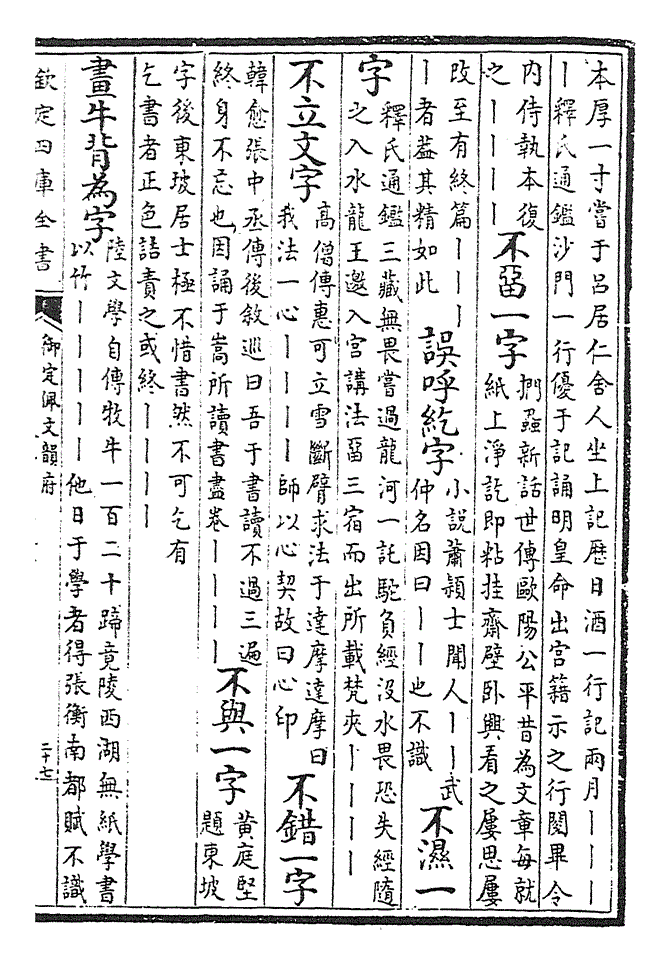 本厚一寸嘗于呂居仁舍人坐上記歷日酒一行記兩月丨丨丨
丨釋氏通鑑沙門一行優于記誦明皇命出宮籍示之行閱畢令
内侍執本復
之丨丨丨丨
不㽞一字
捫蝨新話世傳歐陽公平昔為文章每就
紙上淨訖即粘挂齋壁卧興看之屢思屢
改至有終篇丨丨丨
丨者葢其精如此
誤呼紇字
小說蕭穎士聞人丨丨武
仲名因曰丨丨也不識
不濕一
字
釋氏通鑑三藏無畏嘗過龍河一託駝負經沒水畏恐失經隨
之入水龍王邀入宮講法㽞三宿而出所載梵夾丨丨丨丨
不立文字
高僧傳惠可立雪斷臂求法于達摩達摩曰
我法一心丨丨丨丨師以心契故曰心印
不錯一字
韓愈張中丞傳後敘巡曰吾于書讀不過三遍
終身不忘也因誦于嵩所讀書盡卷丨丨丨丨
不與一字
黄庭堅
題東坡
字後東坡居士極不惜書然不可乞有
乞書者正色詰責之或終丨丨丨丨
畫牛背為字
陸文學自傳牧牛一百二十蹄竟陵西湖無紙學書
以竹丨丨丨丨丨他日于學者得張衡南都賦不識
欽定四庫全書
御定佩文韻府
二十七